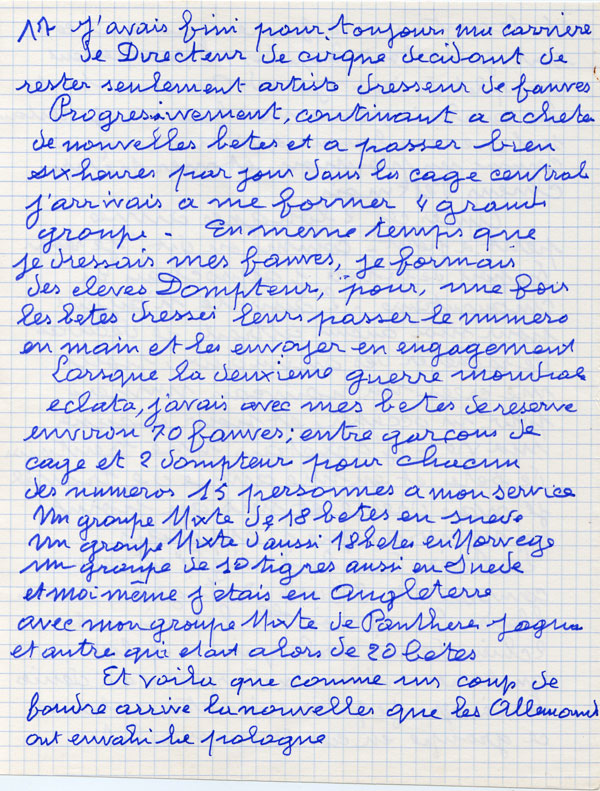 17 J'avais fini pour toujours ma carriere
de Directeur de cirque decidant de
rester seulement artiste dresseur de fauves
Progresivement, continuant a acheter
de nouvelles betes et a passer bien
six heures par jour dans la cage central
j'arrivais a me former 4 grands
groupe - En meme temps que
je dressais mes fauves, je formais
des eleves Dompteur, pour, une fois
les betes dressei leurs passer le numero
en main et les envoyer en engagement
Lorsque la deuxieme guerre mondiale
eclata, j'avais avec mes betes de reserve
environ 70 fauves; entre garçons de
cage et 2 dompteur pour chacun
des numeros 15 personnes a mon service
Un groupe Mixte de 18 betes en suede
un groupe Mixte d'aussi 18 betes en Norvege
un groupe de 10 tigres aussi en Suede
et moi même j'étais en Angleterre
avec mon groupe Mixte de Panthere jagua
et autre qui etait alors de 20 bêtes
Et voila que comme un coup de
foudre arrive la nouvelles que les Allemands
ont envahi la pologne